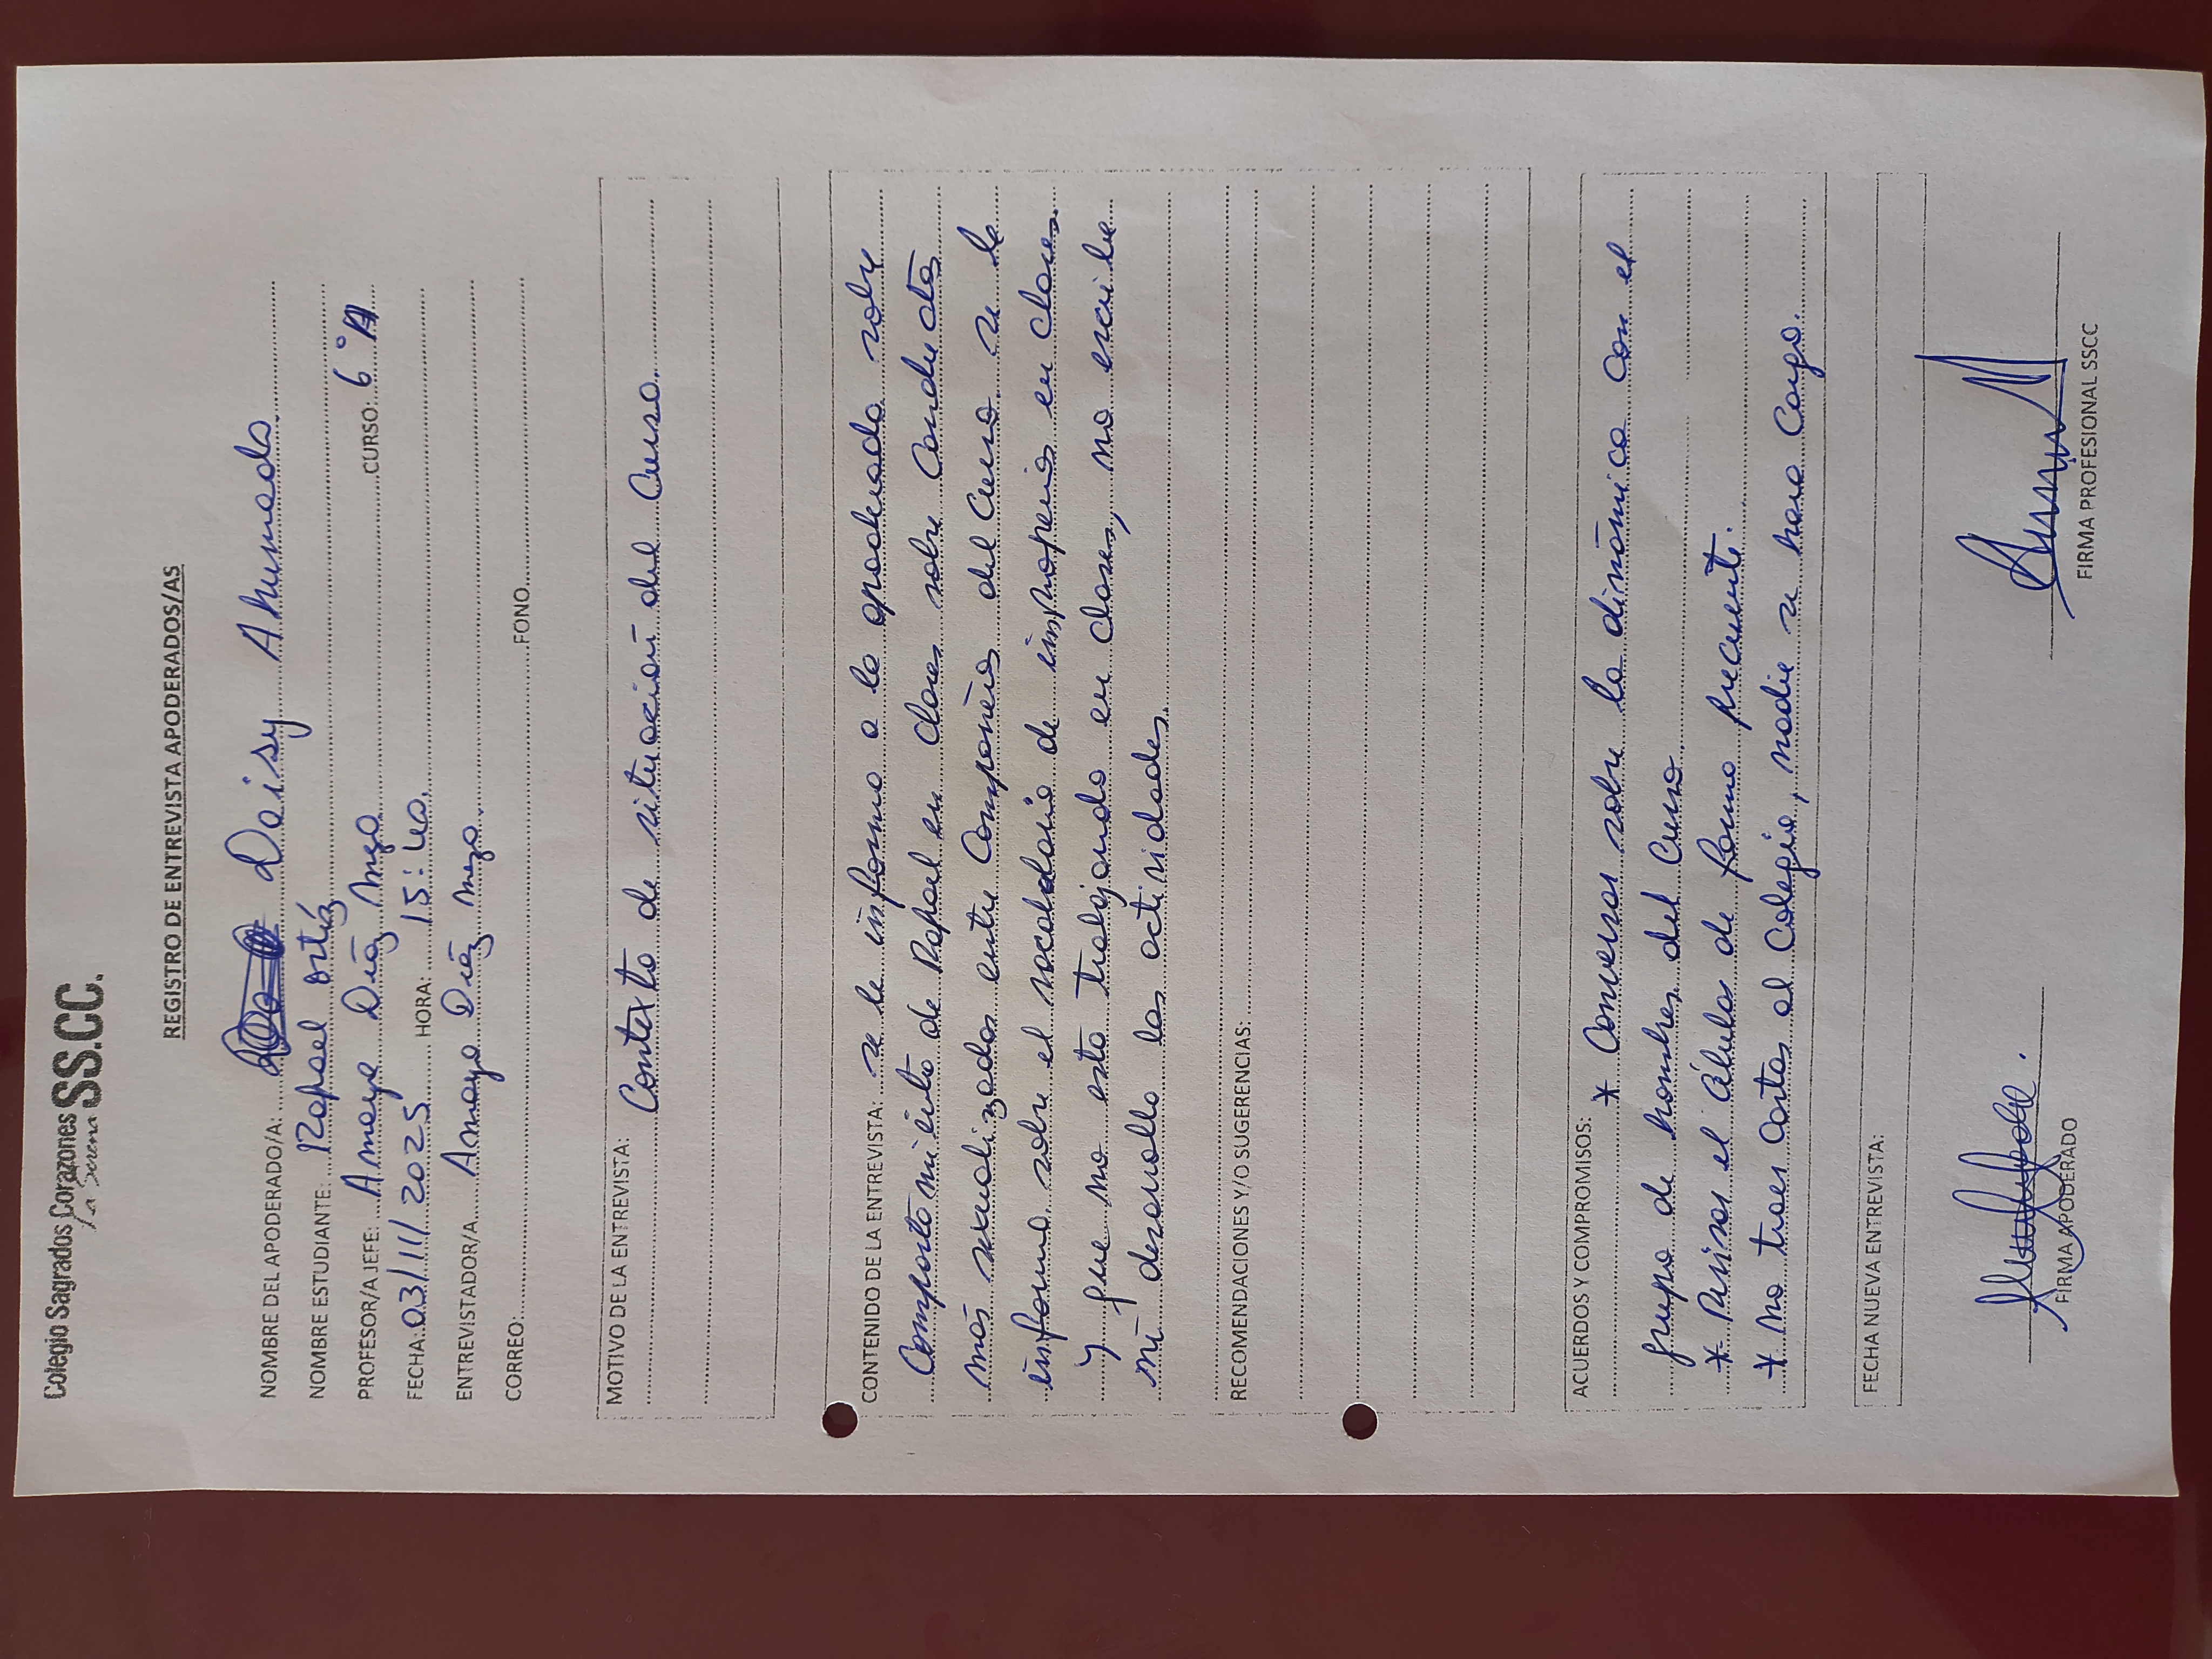 Colegio Sagrados Corazones SS.CC.
La Serena
REGISTRO DE ENTREVISTA APODERADOS/AS
NOMBRE DEL APODERADO/A: Deisy Ahumada
NOMBRE ESTUDIANTE: Rafael Ortíz
PROFESOR/A JEFE: Amaya Diáz Meza CURSO: 6°A
FECHA: 03/11/2025 HORA: 15:40.
ENTREVISTADOR/A Amaya Diáz Meza.
CORREO: FONO
MOTIVO DE LA ENTREVISTA:
Contexto de situación del Curso.
CONTENIDO DE LA ENTREVISTA: se le informa a la apoderada sobre
Comportamiento de Rafael en clases sobre Conductas
más sexualizadas entre Compañeros del Curso. se le
informa sobre el vocabulario de improperios en clases.
y que no esta trabajando en clases, no escribe
ni desarrolla las actividades.
RECOMENDACIONES Y/O SUGERENCIAS:
ACUERDOS Y COMPROMISOS: * Conversar sobre la dinámica con el
grupo de hombres del Curso.
* Revisar el Célular de forma frecuente.
* no traer cartas al Colegio, nadie se hara Cargo.
FECHA NUEVA ENTREVISTA:
FIRMA APODERADO FIRMA PROFESIONAL SSCC